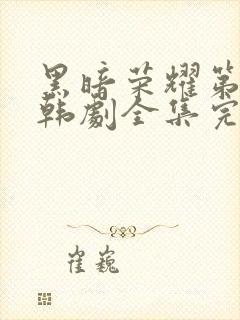 黑暗荣耀第
韩剧全集完
崔巍